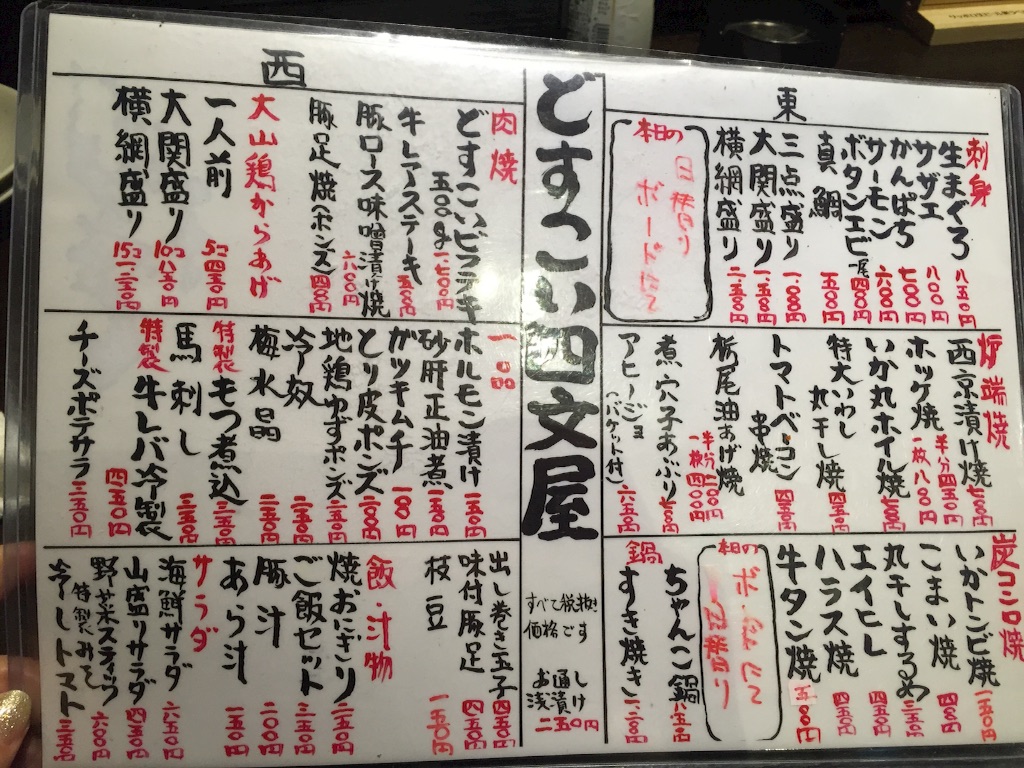 東
刺身
生まぐろ 八五〇円
サザエ 八〇〇円
かんぱち 七〇〇円
サーモン 六〇〇円
ボタンエビ 一尾 四〇〇円
真鯛 五〇〇円
三点盛り 一〇〇〇円
大関盛り 一、五〇〇円
横綱盛り 二、五〇〇円
本日の
日替り
ボードにて
炉端焼
西京漬け焼 七〇〇円
ホッケ焼 半分 四五〇円
一枚 八〇〇円
いか丸ホイル焼
特大いわし
丸干し焼 四五〇円
トマトベーコン
串焼
栃尾油あげ焼
半分 二〇〇円
一枚 四〇〇円
煮穴子あぶり
アヒージョ
(バケット付) 六五〇円
炭コンロ焼
いかトンビ焼
こまい焼
丸干しするめ
エイヒレ 四五〇円
ハラス焼 四五〇円
牛タン焼
本日の
日替り
鍋
ちゃんこ鍋 八五〇円
すき焼き
どすこい四文屋
すべて税抜き
価格です
お通し
浅漬け
二五〇円
西
肉焼
どすこいビフテキ
五〇〇g 一、七〇〇円
牛レアステーキ 五〇〇円
豚ロース味噌漬け焼 六〇〇円
豚足焼(ポンズ) 四〇〇円
大山鶏からあげ
一人前 5コ 四五〇円
大関盛り 10コ 八五〇円
横綱盛り 15コ 一、二五〇円
一品
ホルモン漬け 一五〇円
砂肝正油煮 一五〇円
ガツキムチ
とり皮ポンズ 二〇〇円
地鶏ゆずポンズ
冷奴
梅水晶
特製もつ煮込
馬刺し
特製牛レバ冷製 四五〇円
チーズポテサラ
出し巻き玉子 四五〇円
味付豚足 四五〇円
枝豆 一五〇円
飯・汁物
焼おにぎり 二五〇円
ご飯セット
豚汁 二〇〇円
あら汁 一五〇円
サラダ
海鮮サラダ
山盛りサラダ 四五〇円
野菜スティック
特製みそ 六〇〇円
冷しトマト